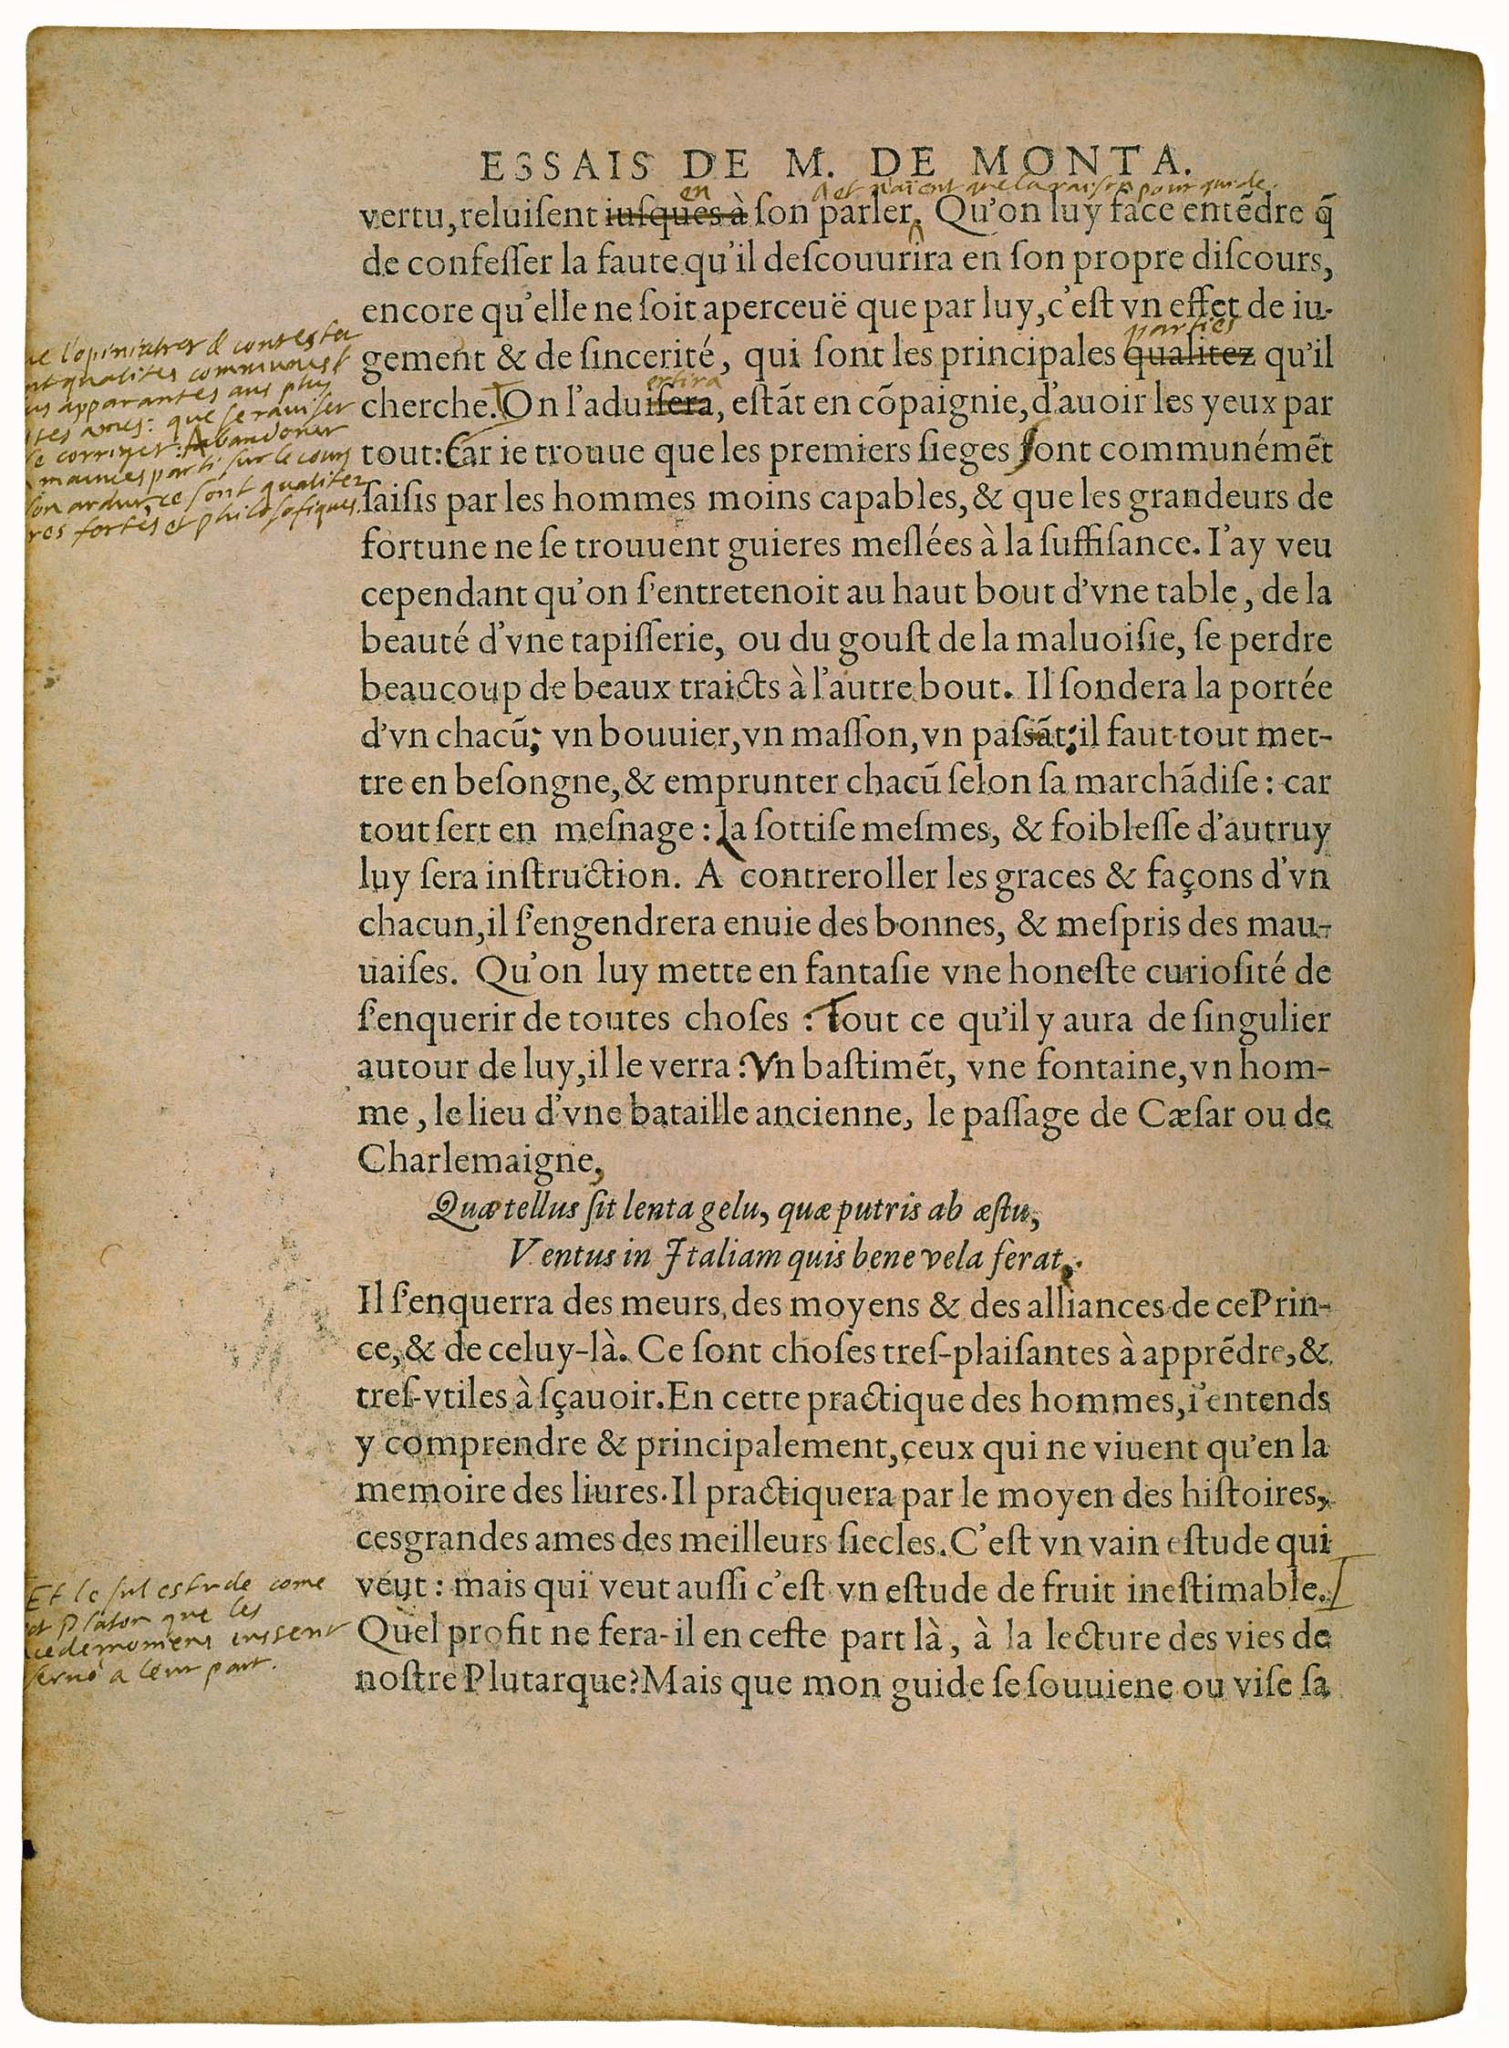 ESSAIS DE M. DE MONTA.
en et n'aient que la raison pour guide.
vertu, reluiſent iuſques à ſon parler. Qu'on luy face entẽdre q̃
de confeſſer la faute qu'il deſcouurira en ſon propre diſcours,
encore qu'elle ne ſoit aperceuë que par luy, c'eſt vn effet de iu-
parties
gement & de ſincerité, qui ſont les principales qualitez qu'il
ertira
cherche. On l'aduiſera, eſtãt en cõpaignie, d'auoir les yeux par
tout: Car ie trouue que les premiers ſieges ſont communémẽt
ſaiſis par les hommes moins capables, & que les grandeurs de
fortune ne ſe trouuent guieres meſlées à la ſuffiſance. I'ay veu
cependant qu'on ſ'entretenoit au haut bout d'vne table, de la
beauté d'vne tapiſſerie, ou du gouſt de la maluoiſie, ſe perdre
beaucoup de beaux traicts à l'autre bout. Il ſondera la portée
d'vn chacũ; vn bouuier, vn maſſon, vn paſsãt; il faut tout met-
tre en beſongne, & emprunter chacũ ſelon ſa marchãdiſe: car
tout ſert en meſnage: la ſottiſe meſmes, & foibleſſe d'autruy
luy ſera inſtruction. A contreroller les graces & façons d'vn
chacun, il ſ'engendrera enuie des bonnes, & meſpris des mau-
uaiſes. Qu'on luy mette en fantaſie vne honeſte curioſité de
ſ'enquerir de toutes choſes: Tout ce qu'il y aura de ſingulier
autour de luy, il le verra: Vn baſtimẽt, vne fontaine, vn hom-
me, le lieu d'vne bataille ancienne, le paſſage de Cæſar ou de
Charlemaigne,
Quæ tellus ſit lenta gelu, quæ putris ab æſtu,
Ventus in Italiam quis bene vela ferat.
Il ſ'enquerra des meurs, des moyens & des alliances de ce Prin-
ce, & de celuy-là. Ce ſont choſes treſ-plaiſantes à apprẽdre, &
treſ-vtiles à ſçauoir. En cette practique des hommes, i'entends
y comprendre & principalement, ceux qui ne viuent qu'en la
memoire des liures. Il practiquera par le moyen des hiſtoires,
ces grandes ames des meilleurs ſiecles. C'eſt vn vain eſtude qui
veut: mais qui veut auſſi c'eſt vn eſtude de fruit ineſtimable.
Quel profit ne fera-il en ceſte part là, à la lecture des vies de
noſtre Plutarque? Mais que mon guide ſe ſouuiene ou viſe ſa
l'opiniatrer & contester
qualites communes
apparantes aus plus
ames: que se raviser
se corriger: Abandoner
mauves parti sur le cours
son ardur, ce sont qualites
fortes et philosofiques.
Et le sul estude come
Platon que les
eussent
a leur part.